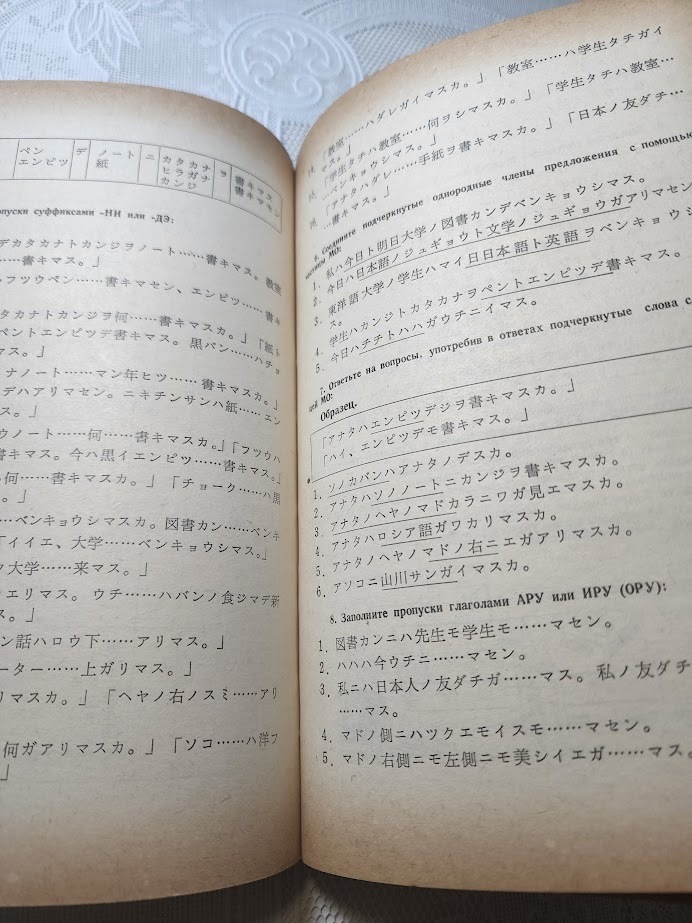 ペン
エンピツ
デ
ノート
紙
ニ
カタカナ
ヒラガナ
カンジ
ヲ
書キマス
書キマセン
суффиксами -НИ или -ДЭ:
デカタカナトカンジヲノート……書キマス。教室
……書キマス。」
フツウペン……書キマセン、エンピツ……書キ
タカナトカンジヲ何……書キマスカ。」「紙ト
ペントエンピツデ書キマス。黒バン……ハチョ
マス。」
ナノート……マン年ヒツ……書キマスカ。」
デハアリマセン。ニキチンサンハ紙……エン
ス。」
ウノート……何……書キマスカ。」「フツウハ
書キマス。今ハ黒イエンピツ……書キマス。」
何……書キマスカ。」「チョーク……ハ黒
……ベンキョウシマスカ。図書カン……ベンキ
「イイエ、大学……ベンキョウシマス。」
大学……来マス。」
エリマス。ウチ……ハバンノ食ジマデ新
ス。」
ン話ハロウ下……アリマス。」
ーター……上ガリマス。」
リマスカ。」「ヘヤノ右ノスミ……アリ
何ガアリマスカ。」「ソコ……ハ洋フ
」
「教室……ハダレガイマスカ。」「教室……ハ学生タチガイ
マス。」
「学生タチハ教室……何ヲシマスカ。」「学生タチハ教室…
…ベンキョウシマス。」
「アナタハダレ……手紙ヲ書キマスカ。」「日本ノ友ダチ…
…書キマス。」
6. Соедините подчеркнутые однородные члены предложения с помощью
частицы МО:
1. 私ハ今日ト明日大学ノ図書カンデベンキョウシマス。
2. 今日ハ日本語ノジュギョウト文学ノジュギョウガアリマセン
3. 東洋語大学ノ学生ハマイ日日本語ト英語ヲベンキョウシマ
ス。
4. 学生ハカンジトカタカナヲペントエンピツデ書キマス。
5. 今日ハチチトハハガウチニイマス。
7. Ответьте на вопросы, употребив в ответах подчеркнутые слова с
цей МО:
Образец.
「アナタハエンピツデジヲ書キマスカ。」
「ハイ、エンピツデモ書キマス。」
1. ソノカバンハアナタノデスカ。
2. アナタハソノノートニカンジヲ書キマスカ。
3. アナタノヘヤノマドカラニワガ見エマスカ。
4. アナタハロシア語ガワカリマスカ。
5. アナタノヘヤノマドノ右ニエガアリマスカ。
6. アソコニ山川サンガイマスカ。
8. Заполните пропуски глаголами АРУ или ИРУ (ОРУ):
1. 図書カンニハ先生モ学生モ……マセン。
2. ハハハ今ウチニ……マセン。
3. 私ニハ日本人ノ友ダチガ……マス。私ノ友ダチ
……マス。
4. マドノ側ニハツクエモイスモ……マセン。
5. マドノ右側ニモ左側ニモ美シイエガ……マス。